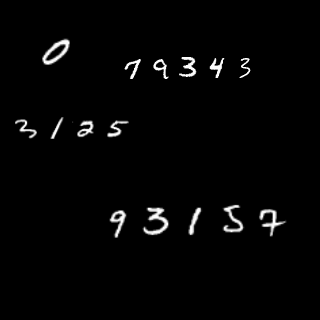 0
79343
3125
93157